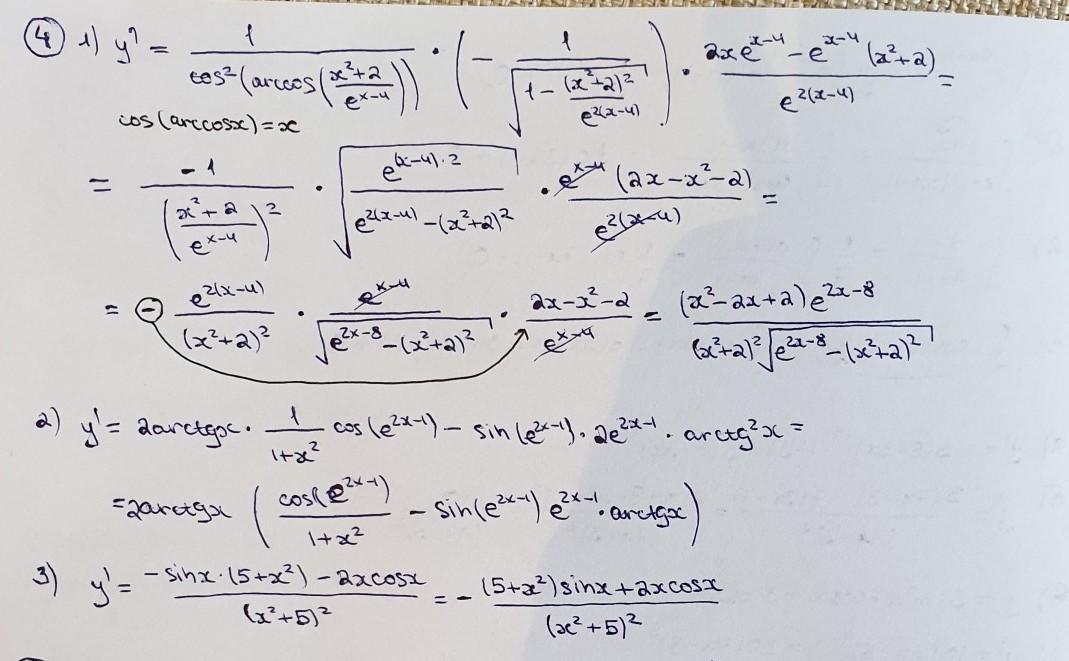 ④ 1) y' = 1/cos²(arccos((x²+2)/e^(x-4))) · (- 1/√(1 - (x²+2)²/e^(2(x-4)))) · (2xe^(x-4) - e^(x-4)(x²+2))/e^(2(x-4)) =
cos(arccosx)=x
= -1/((x²+2)/e^(x-4))² · √(e^((x-4)·2)/(e^(2(x-4)) - (x²+2)²)) · e^(x-4)(2x-x²-2)/e^(2(x-4)) =
= - e^(2(x-4))/(x²+2)² · e^(x-4)/√(e^(2x-8) - (x²+2)²) · (2x-x²-2)/e^(x-4) = (x²-2x+2)e^(2x-8)/((x²+2)²√(e^(2x-8) - (x²+2)²))
2) y' = 2arctgx · 1/(1+x²) cos(e^(2x-1)) - sin(e^(2x-1)) · 2e^(2x-1) · arctg²x =
=2arctgx (cos(e^(2x-1))/(1+x²) - sin(e^(2x-1)) e^(2x-1) · arctgx)
3) y' = (-sinx·(5+x²) - 2xcosx)/(x²+5)² = - ((5+x²)sinx+2xcosx)/(x²+5)²